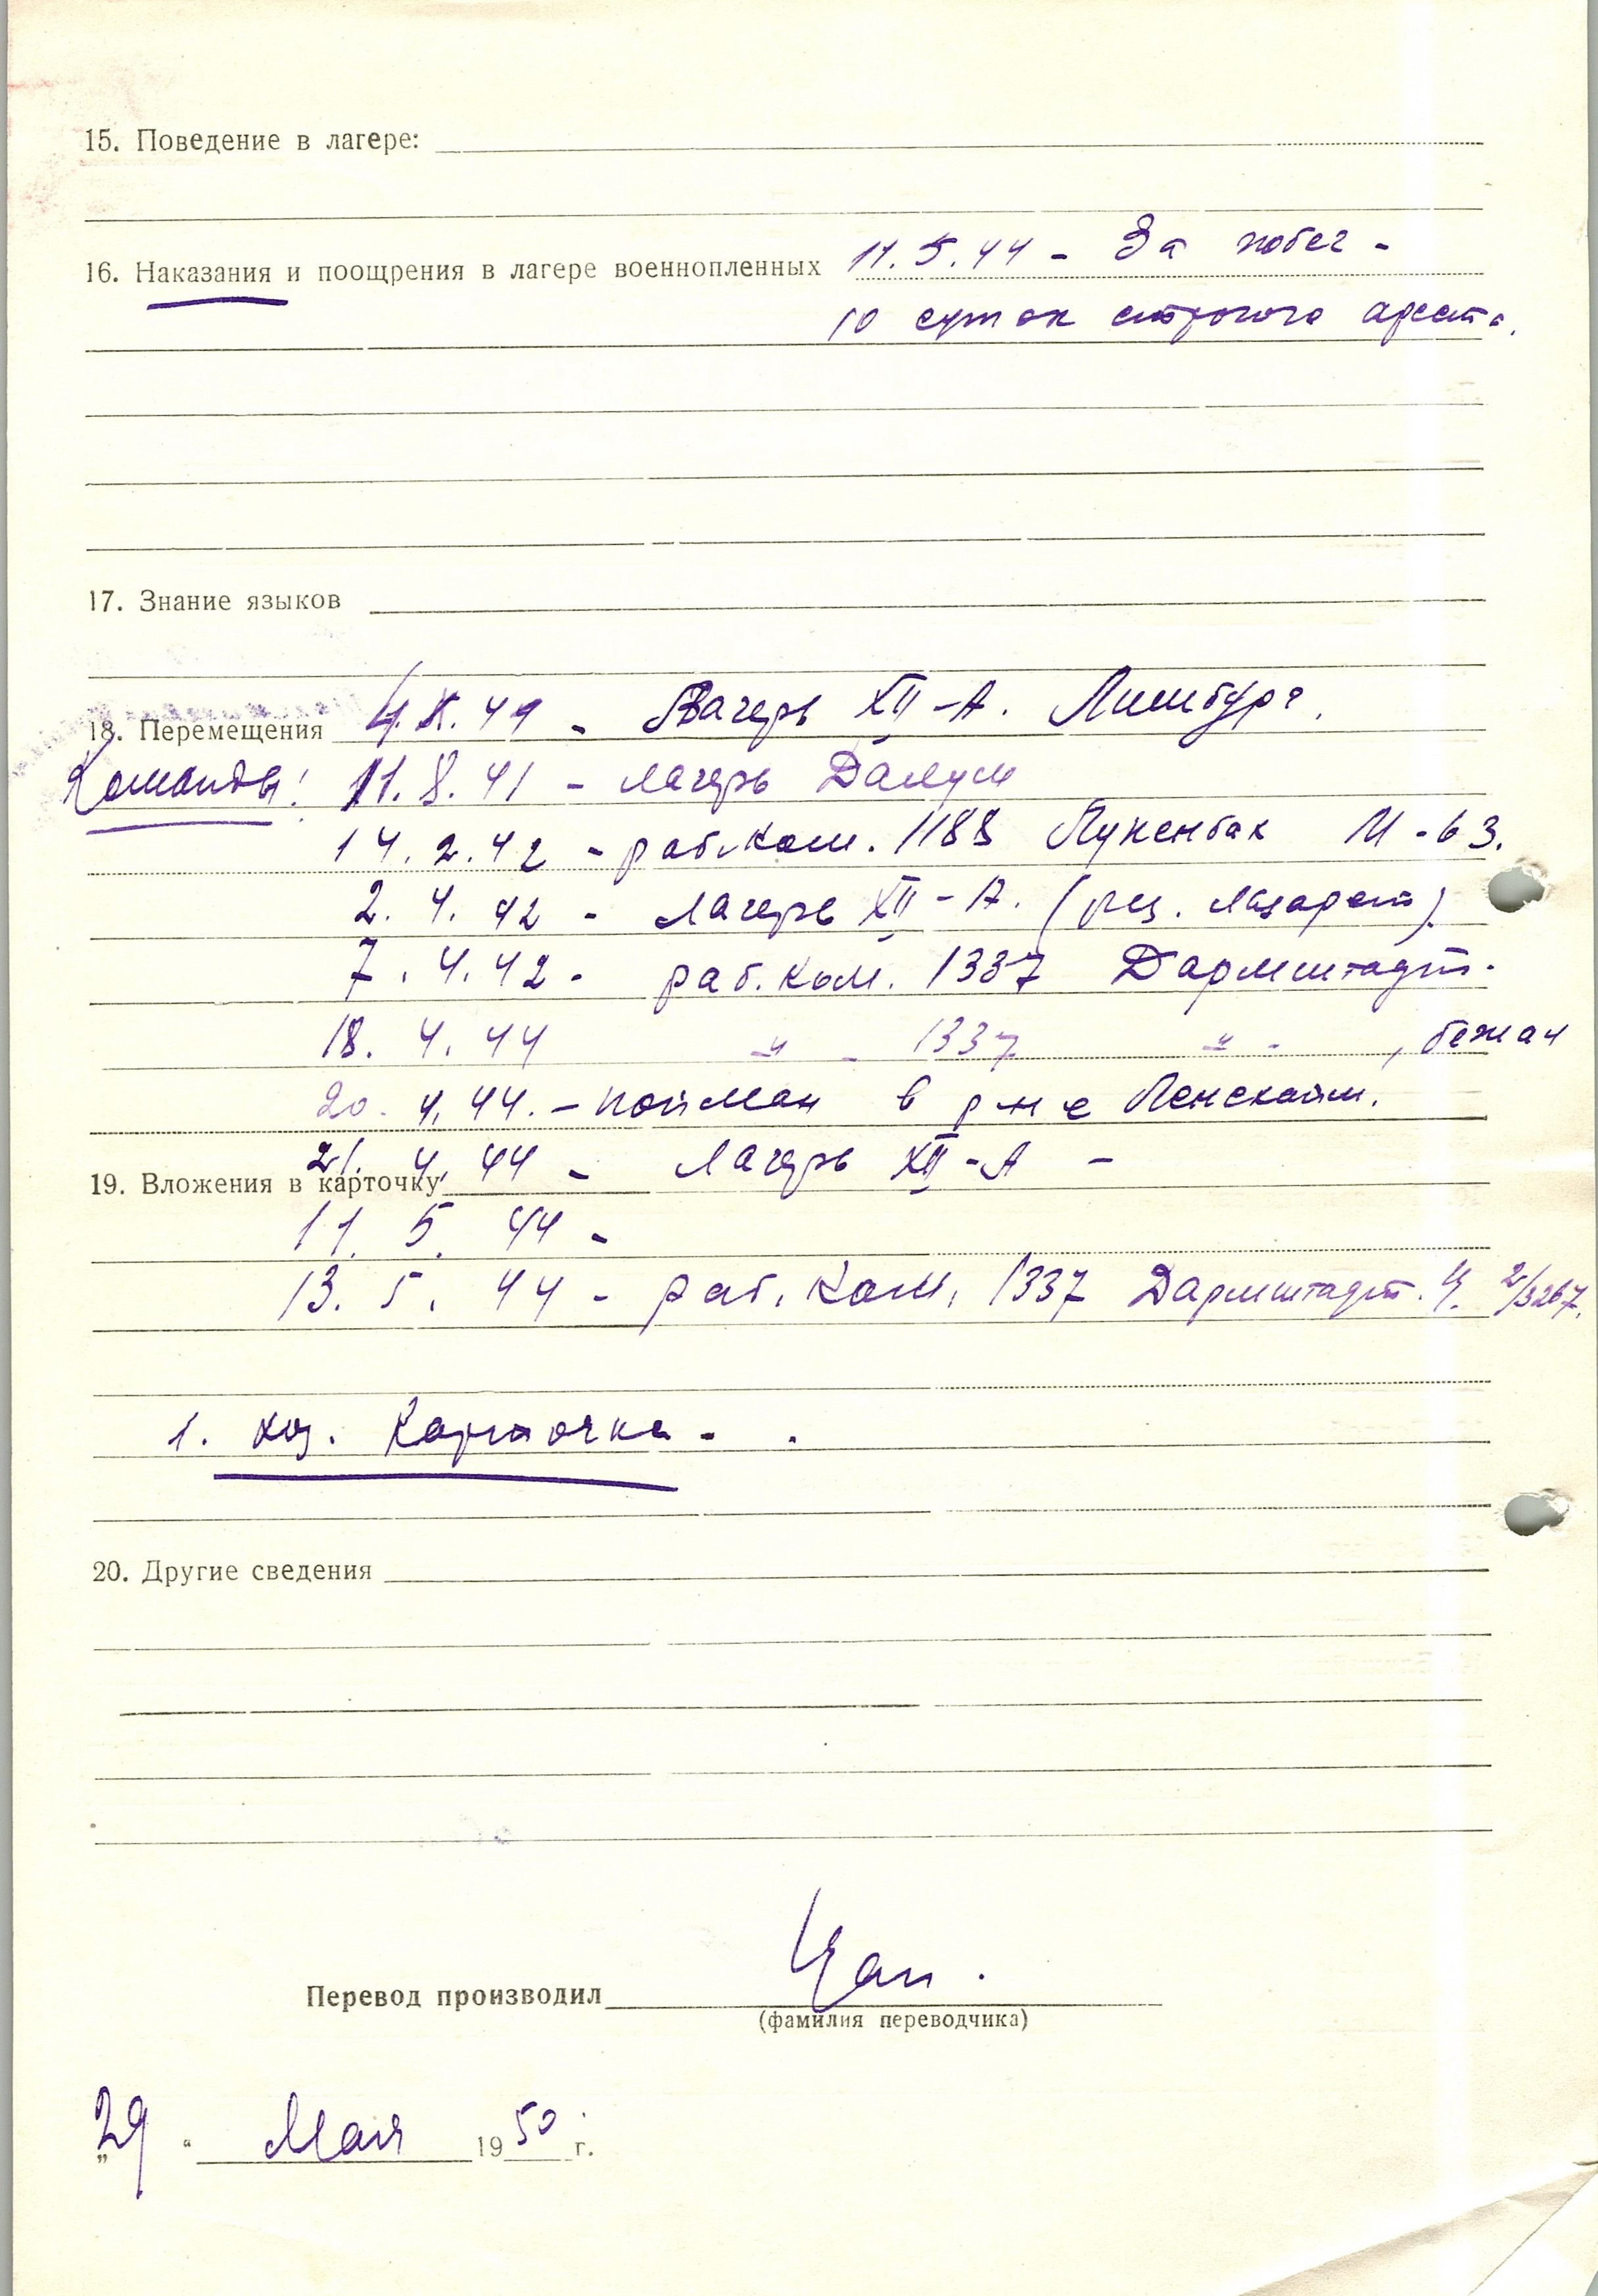 15. Поведение в лагере:
16. Наказания и поощрения в лагере военнопленных 11.5.44 - За побег -
10 суток строгого ареста.
17. Знание языков
18. Перемещения 4.X.41 - Лагерь XII-А. Лимбург.
Команды: 11.8.41 - лагерь Далум
14.2.42 - раб. ком. 1188 Лукенбах М-63.
2.4.42 - Лагерь XII-А. (рез. лазарет)
7.4.42 - раб. ком. 1337 Дармштадт.
18.4.44 " - 1337 " - , бежал
20.4.44. - пойман в р-не Бенсхайм.
21.4.44 - Лагерь XII-А -
19. Вложения в карточку
11.5.44 -
13.5.44 - раб. ком. 1337 Дармштадт. 2/3267.
1. Карточка.
20. Другие сведения
Перевод производил
(фамилия переводчика)
„29“ Мая 1950 г.